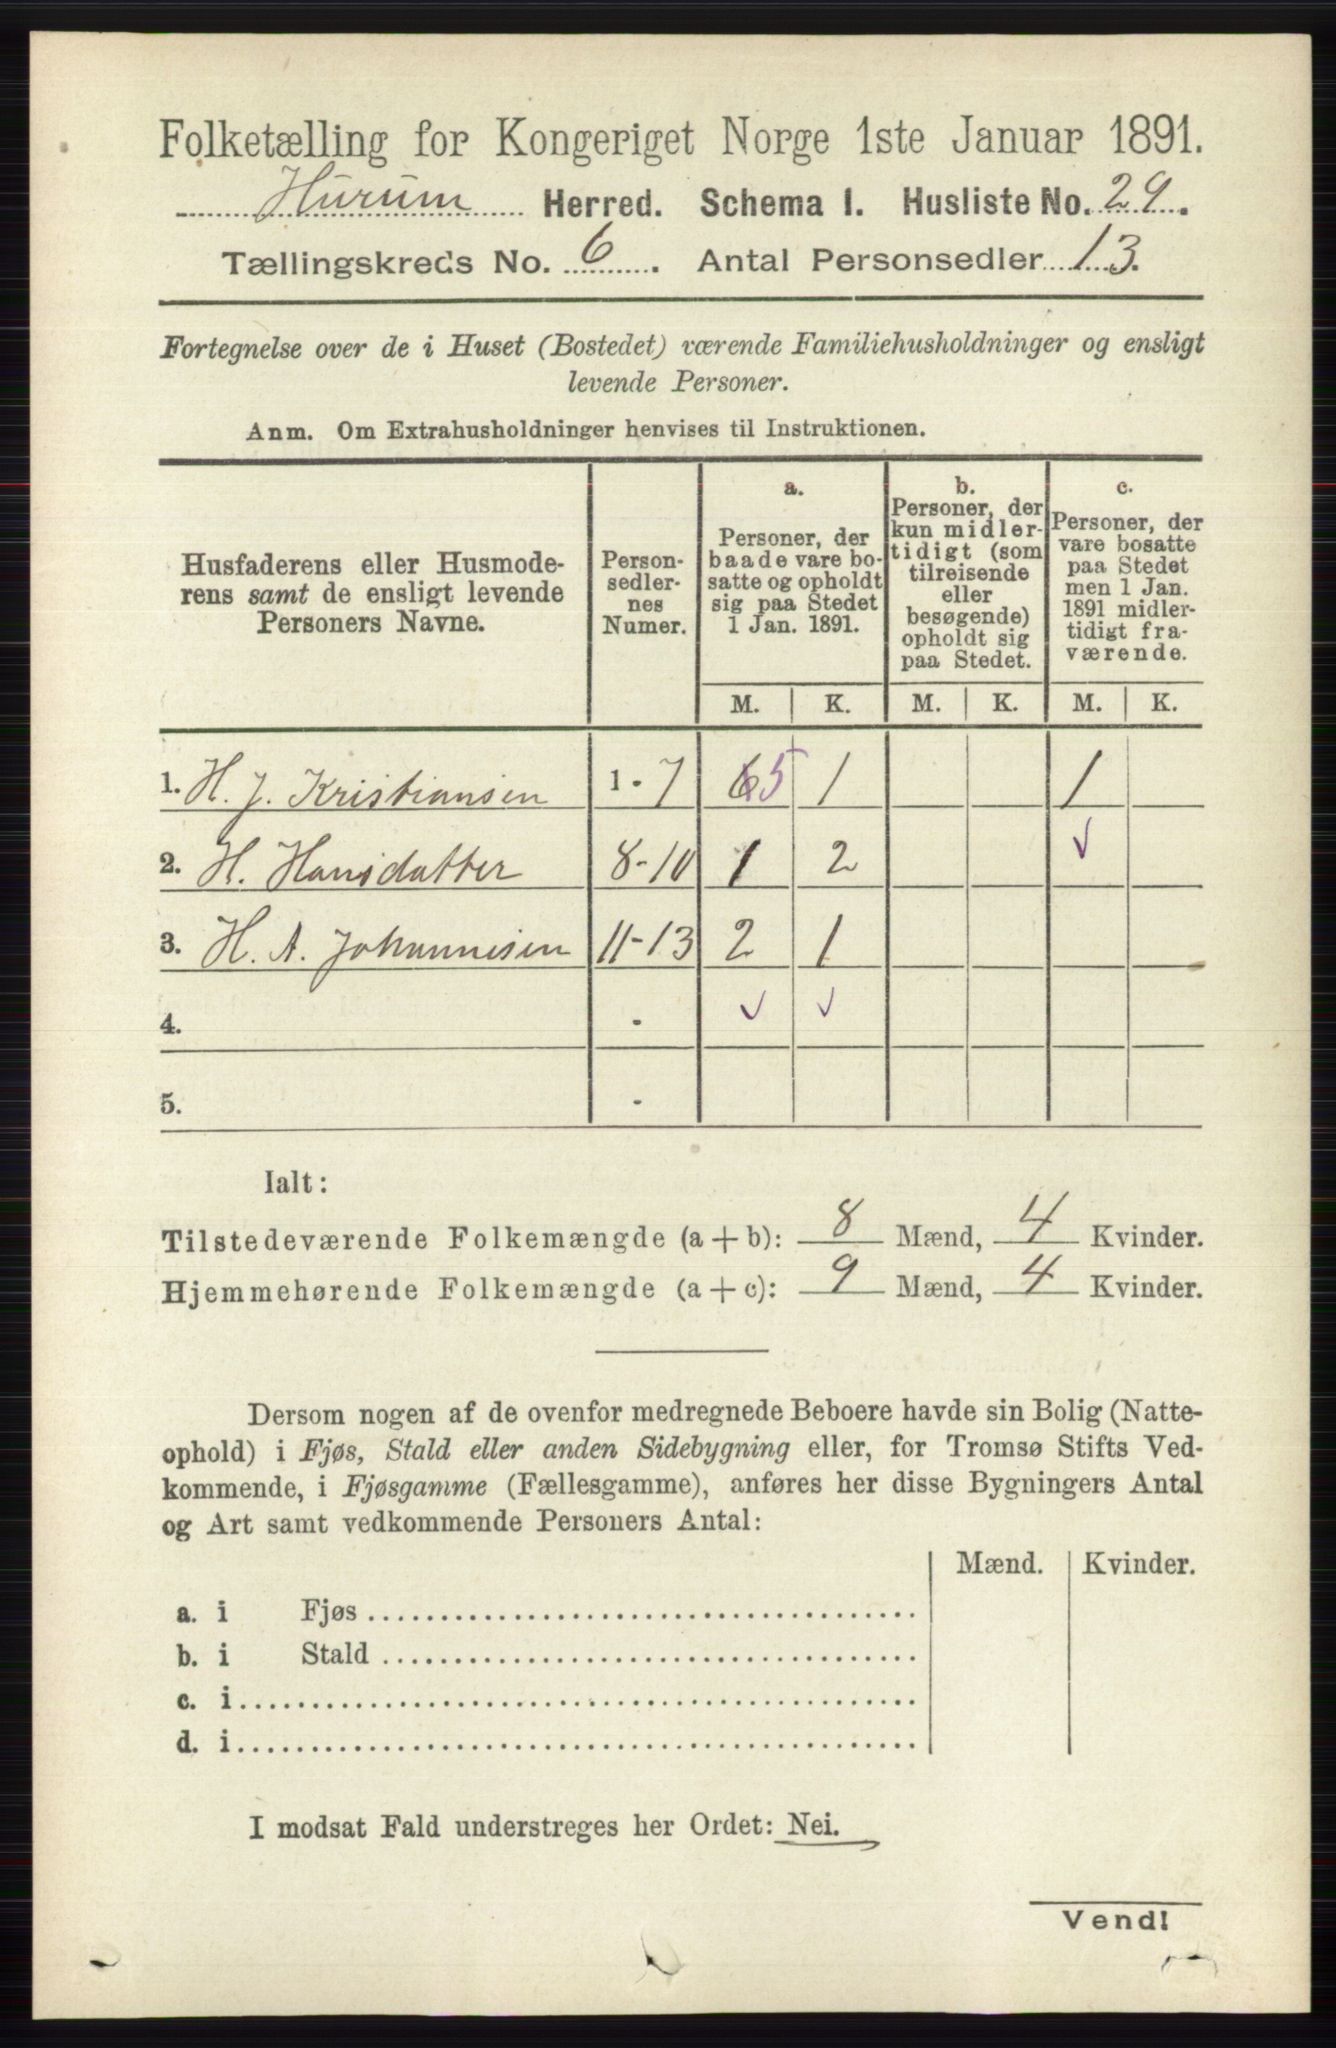 Folketælling for Kongeriget Norge 1ste Januar 1891.
Hurum Herred. Schema I. Husliste No. 29.
Tællingskreds No. 6. Antal Personsedler 13.
Fortegnelse over de i Huset (Bostedet) værende Familiehusholdninger og ensligt
levende Personer.
Anm. Om Extrahusholdninger henvises til Instruktionen.
Husfaderens eller Husmode-
rens samt de ensligt levende
Personers Navne.
Person-
sedler-
nes
Numer.
a.
Personer, der
baade vare bo-
satte og opholdt
sig paa Stedet
1 Jan. 1891.
b.
Personer, der
kun midler-
tidigt (som
tilreisende
eller
besøgende)
opholdt sig
paa Stedet.
c.
Personer, der
vare bosatte
paa Stedet
men 1 Jan.
1891 midler-
tidigt fra-
værende.
M. K. M. K. M. K.
1. H. J. Kristiansen 1-7 6 5 1 1
2. H. Hansdatter 8-10 1 2 ✓
3. H. A. Johannesen 11-13 2 1
4. - ✓ ✓
5. -
Ialt:
Tilstedeværende Folkemængde (a + b): 8 Mænd, 4 Kvinder.
Hjemmehørende Folkemængde (a + c): 9 Mænd, 4 Kvinder.
Dersom nogen af de ovenfor medregnede Beboere havde sin Bolig (Natte-
ophold) i Fjøs, Stald eller anden Sidebygning eller, for Tromsø Stifts Ved-
kommende, i Fjøsgamme (Fællesgamme), anføres her disse Bygningers Antal
og Art samt vedkommende Personers Antal:
Mænd. Kvinder.
a. i Fjøs
b. i Stald
c. i
d. i
I modsat Fald understreges her Ordet: Nei.
Vend!